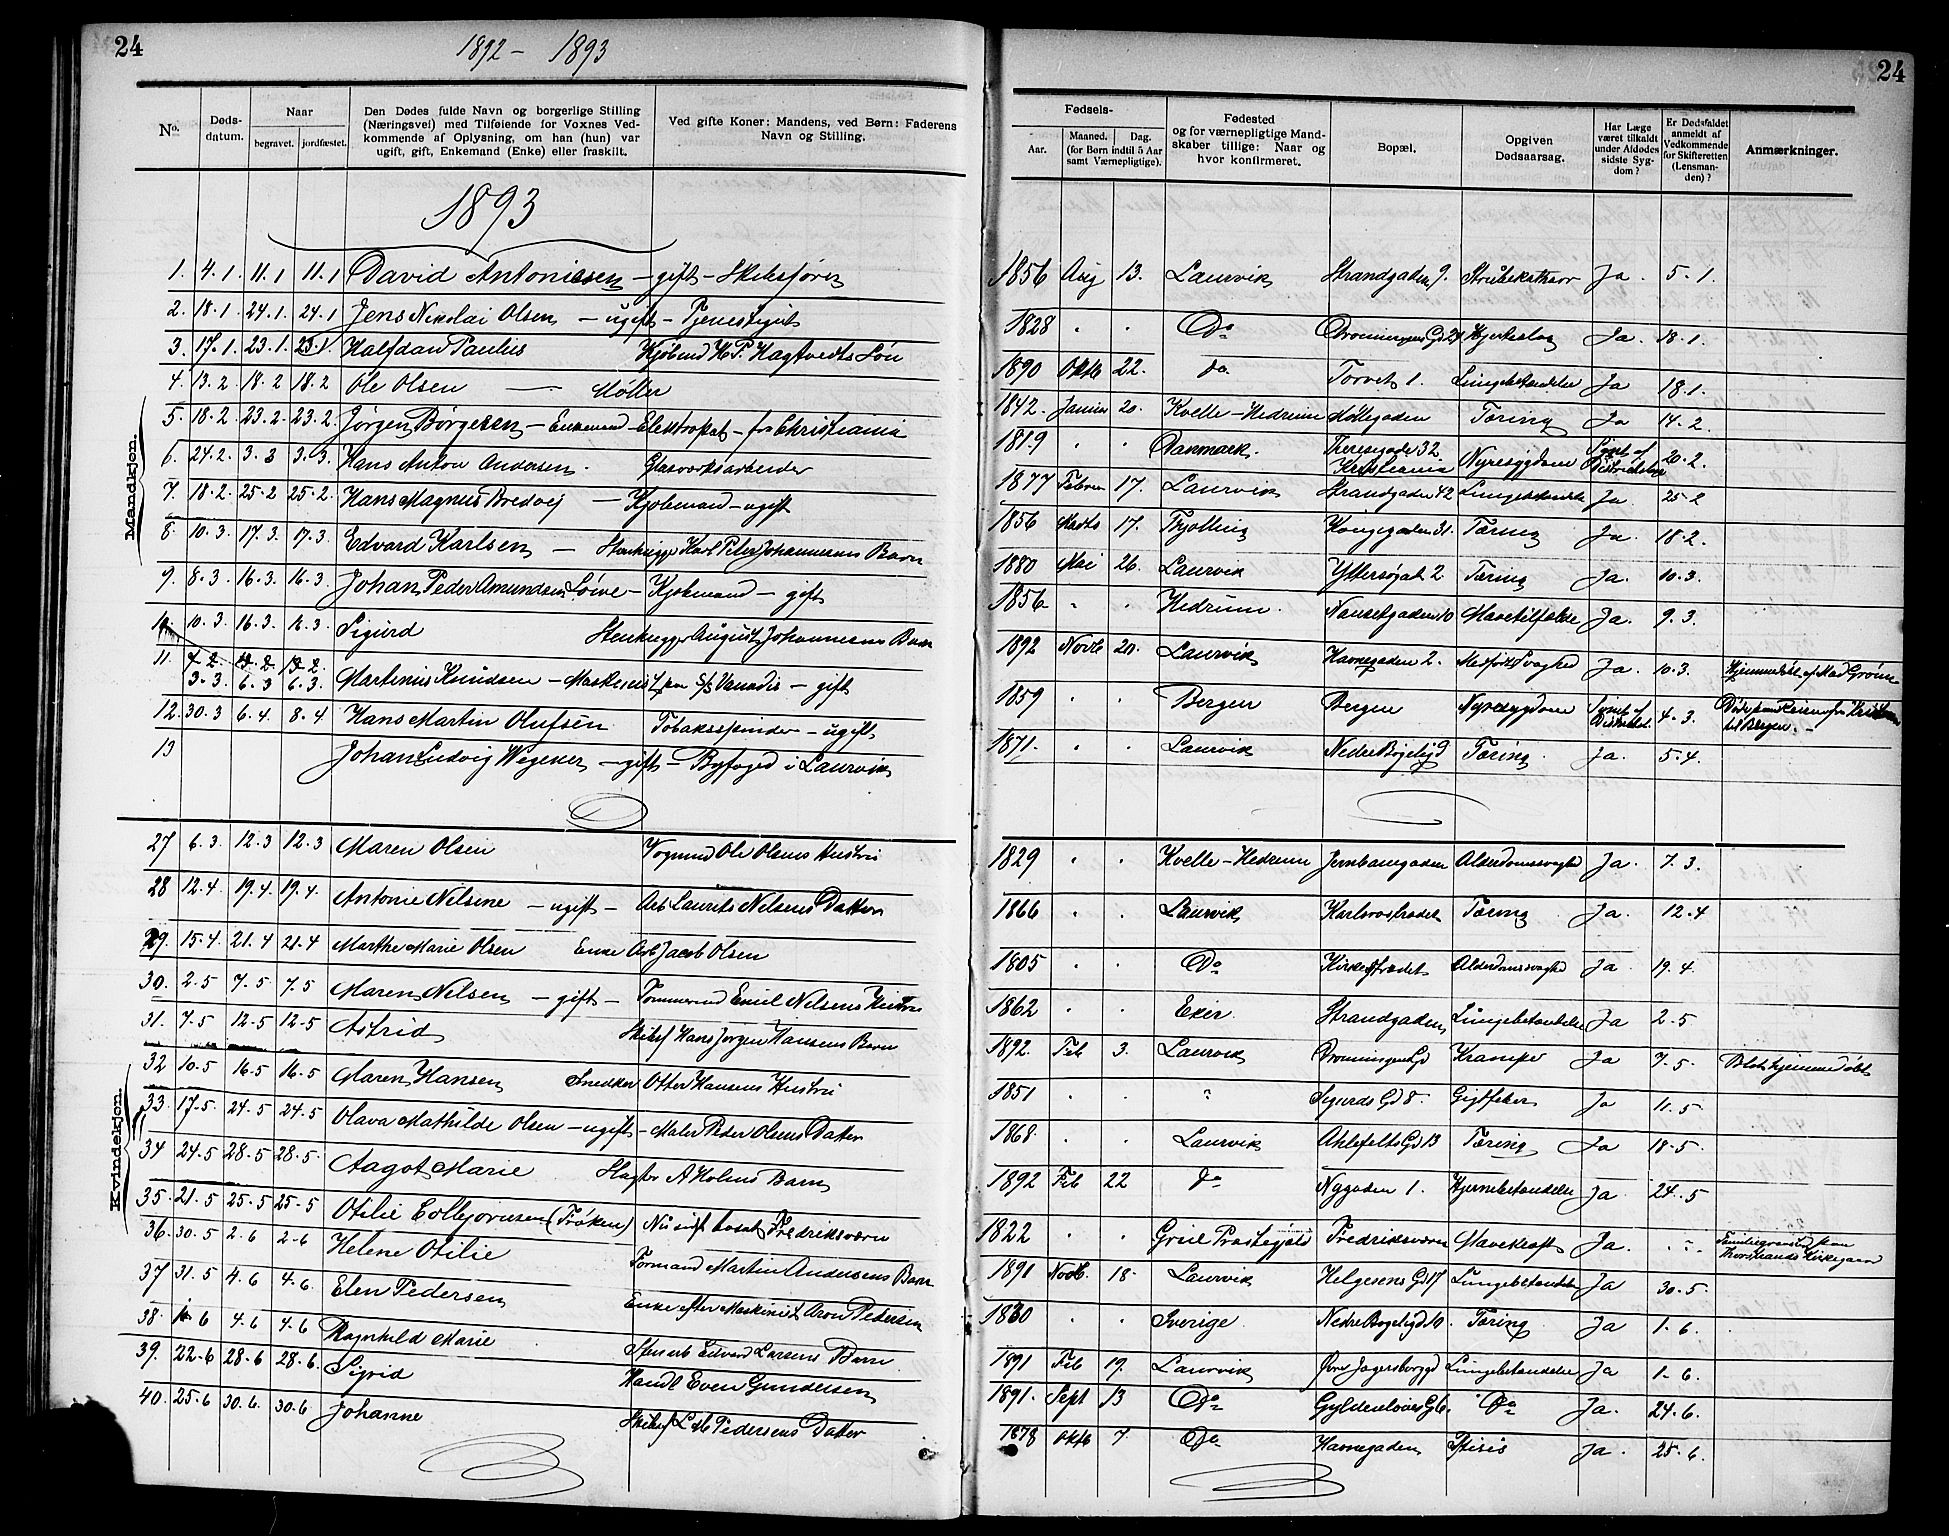 24
1892 - 1893
No.
Døds-
datum.
Naar
begravet.
jordfæstet.
Den Dødes fulde Navn og borgerlige Stilling
(Næringsvei) med Tilføiende for Voxnes Ved-
kommende af Oplysning, om han (hun) var
ugift, gift, Enkemand (Enke) eller fraskilt.
Ved gifte Koner: Mandens, ved Børn: Faderens
Navn og Stilling.
1893
Mandkjøn.
1. 4.1. 11.1 11.1 David Antonissen - gift - Skibsfører
2. 18.1. 24.1 24.1 Jens Nikolai Olsen - ugift - Tjenestegut
3. 17.1. 23.1. 23.1. Halfdan Paulus Kjøbmd H.P. Hagtvedts Søn
4. 13.2 18.2 18.2 Ole Olsen — Møller
5. 18.2 23.2. 23.2. Jørgen Børgesen - Enkemand - fra Christiania
6. 24.2 3.3 3.3. Hans Anton Andersen. Glasværksarbeider
7. 18.2 25.2 25.2. Hans Magnus Bredvej - Kjøbmand - ugift
8. 10.3. 17.3. 17.3 Edvard Karlsen - Stenhugger Karl Peter Johannesens Barn
9. 8.3. 16.3. 16.3. Johan Peder Amundsen - Kjøbmand - gift
10. 10.3. 16.3. 16.3. Sigurd Stenhugger August Johannesens Barn
11. 3.3. 6.3 6.3. Martinius Knudsen - Maskinist paa S/S Vanadis - gift
12. 30.3 6.4. 8.4 Hans Martin Olufsen Tobaksspinder - ugift
13 Johan Ludvig Wegener - gift - Byfoged i Laurvik
Kvindekjøn.
27 6.3. 12.3 12.3 Maren Olsen Vognmd Ole Olsens Hustru
28 12.4 19.4 19.4. Antonie Nilsine - ugift - Arb Laurits Nilsens Datter
29. 15.4. 21.4 21.4 Marthe Marie Olsen Enke Arb Jacob Olsen
30. 2.5 7.5 7.5 Maren Nilsen - gift - Tømmermd Emil Nilsens Hustru
31. 7.5 12.5 12.5 Astrid Skibsf Hans Jørgen Hansens Barn
32 10.5 16.5 16.5 Maren Hansen Snedker Otter Hansens Hustru
33. 17.5. 24.5 24.5 Olava Mathilde Olsen - ugift - Maler Peder Olsens Datter
34 24.5 28.5 28.5. Aagot Marie Slagter A Holms Barn
35. 21.5 25.5 25.5 Otilie (Frøken) Fredriksværn
36. 30.5 2.6 2.6 Helene Otilie Formand Martin Andersens Barn
37 31.5 4.6 4.6. Elen Pedersen Enke efter Maskinist Aron Pedersen
38. 1.6 4.6 4.6 Ragnhild Marie Stenarb Edvard Larsens Barn
39. 22.6 28.6 28.6. Sigrid Handl Even Gundersen
40. 25.6 30.6. 30.6 Johanne Skibsf L. M. Pedersens Datter
24
Fødsels-
Aar.
Maaned.
Dag.
(for Børn indtil 5 Aar
samt Værnepligtige).
Fødested
og for værnepligtige Mand-
skaber tillige: Naar og
hvor konfirmeret.
Bopæl.
Opgiven
Dødsaarsag.
Har Læge
været tilkaldt
under Afdødes
sidste Syg-
dom?
Er Dødsfaldet
anmeldt af
Vedkommende
for Skifteretten
(Lensman-
den)?
Anmærkninger.
1856 Aug 13. Laurvik Strandgaden 9. Strubekatharr Ja 5.1.
1828 " " Do Dronningens Gd 24 Hjerteslag Ja. 18.1.
1890 Oktb 22. do Torvet 1. Lungebetændelse Ja 18.1.
1842. Januar 20. Kvelle - Hedrum Møllegaden Tæring Ja 14.2.
1819 " " Danmark. Theresegade 32 Kristiania Nyresygdom Synet af Distriktslæg 20.2.
1877 Febru 17. Laurvik Strandgaden 42 Lungebetændelse Ja. 25.2
1856 Marts 17. Thjølling Kongegaden 31. Tæring Ja. 18.2.
1880 Mai 26. Laurvik Yttersøgat 2 Tæring Ja. 10.3.
1856 " " Hedrum. Nansetgaden 10 Mavetilfælde Ja. 9.3.
1892 Novb 20. Laurvik Havnegaden 2. Medfødt Svaghed Ja. 10.3. Hjemmedøbt af Mad Grønn
1859 " " Bergen Bergen Nyresygdom Synet af 4.3. Døde paa Reisen fra Kristiania til Bergen. -
1871. " " Laurvik Nedre Bøgeligd Tæring. Ja. 5.4.
1829 " " Kvelle - Hedrum Jernbanegaden Alderdomssvaghed Ja. 7.3.
1866 " " Laurvik Karlsrostrædet Tæring Ja. 12.4
1805 " " Do Kirkestrædet Alderdomssvaghed Ja 19.4.
1862 " " Eker. Strandgaden Lungebetændelse Ja 2.5
1892. Feb 3. Laurvik Dronningens Gd Krampe Ja 7.5. Blot hjemmedøbt
1851 " " " Sigurds Gd 8. Gigtfeber Ja 11.5.
1868 " " Laurvik Ahlefeldts Gd 13 Tæring Ja 18.5.
1892 Feb 22 do Nygaden 1. Hjernebetændelse Ja. 24.5
1822 " " Præstegjæld Fredriksværn Mavekræft Ja. " " Familiegravsted paa Thorstrands Kirkegaard
1891 Novb. 18. Laurvik Helgesens Gd 17 Lungebetændelse Ja 30.5.
1830 " " Sverige. Nedre Bøgeligd 10. Tæring. Ja 1.6.
1891 Feb 19. Laurvik Øvre Jegersborggd Lungebetændelse Ja 1.6.
1891. Sept 13 Do Gyldenløves G 6. Do Ja. 24.6.
1878 Oktb 7. Do Havnegaden Ptisis Ja. 25.6.